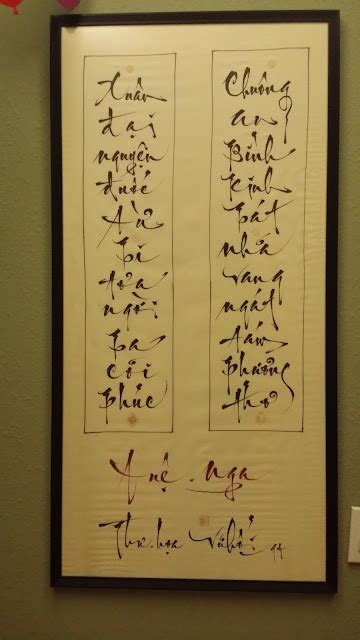 Xuân
đại
nguyện
đuốc
Từ
Bi
tỏa
ngời
Ba
cõi
phúc
Chuông
an
Bình
Kinh
Bát
nhã
vang
ngát
tám
phương
thơ
Tuệ . nga
Thư.họa Vũhối